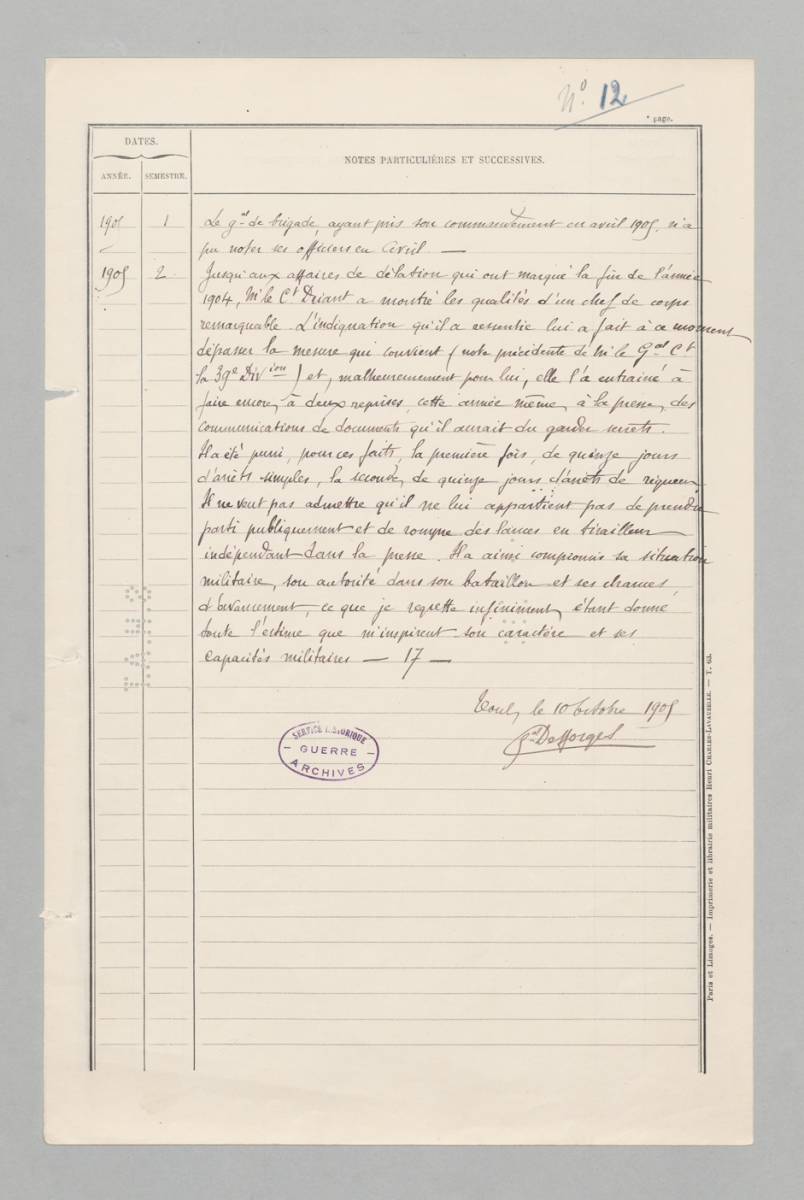 N° 12
° page.
DATES.
NOTES PARTICULIÈRES ET SUCCESSIVES.
ANNÉE. SEMESTRE.
1905 1 Le gal de brigade, ayant pris son commandement en avril 1905, n'a
pu noter ses officiers en Avril —
1905 2 Jusqu'aux affaires de délation qui ont marqué la fin de l'année
1904, Mr le Ct Driant a montré les qualités d'un chef de corps
remarquable. L'indignation qu'il a ressentie lui a fait à ce moment
dépasser la mesure qui convient (note précédente de Mr le Gal Ct
la 39e Division) et, malheureusement pour lui, elle l'a entrainé à
faire encore, à deux reprises, cette année même, à la presse, des
communications de documents qu'il aurait du garder secrets.
Il a été puni, pour ces faits, la première fois, de quinze jours
d'arrêts simples, la seconde, de quinze jours d'arrêts de rigueur.
Il ne veut pas admettre qu'il ne lui appartient pas de prendre
parti publiquement et de rompre des lances en tirailleur
indépendant dans la presse. Il a ainsi compromis sa situation
militaire, son autorité dans son bataillon et ses chances
d'avancement, ce que je regrette infiniment, étant donné
toute l'estime que m'inspirent son caractère et ses
capacités militaires — 17 —
Toul, le 10 Octobre 1905
Gal Desforges
SERVICE HISTORIQUE
— GUERRE —
ARCHIVES
Paris et Limoges. — Imprimerie et librairie militaires Henri CHARLES-LAVAUZELLE. — T. 63.